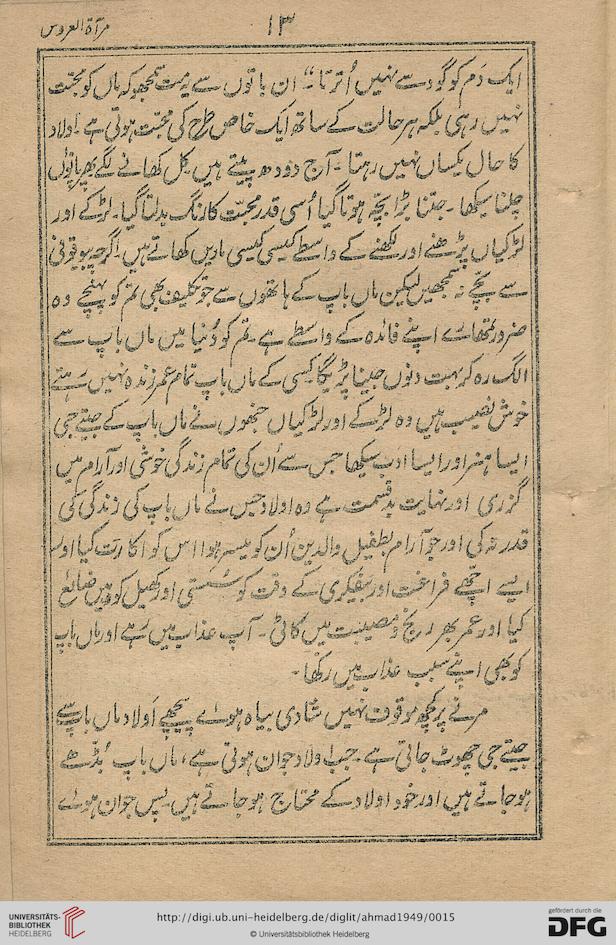 ۱۳
مرآۃ العروس
ایک دَم کو گود سے نہیں اُترتا‘‘ ان باتوں سے یہ مت سمجھو کہ ماں کو محبّت
نہیں رہی بلکہ ہر حالت کے ساتھ ایک خاص طرح کی محبّت ہوتی ہے۔ اولاد
کا حال یکساں نہیں رہتا۔ آج دودھ پیتے ہیں۔ کل کھانے لگے پھر پاؤں
چلنا سیکھا۔ جتنا بڑا بچّہ ہوتا گیا اُسی قدر محبّت کا رنگ بدلتا گیا۔ لڑکے اور
لڑکیاں پڑھنے اور لکھنے کے واسطے کیسی کیسی ماریں کھاتے ہیں۔ اگرچہ بیوقوفی
سے بچّے نہ سمجھیں لیکن ماں باپ کے ہاتھوں سے جو تکلیف بھی تم کو پہنچے وہ
ضرور تمھارے اپنے فائدہ کے واسطے ہے۔ تم کو دُنیا میں ماں باپ سے
الگ رہ کر بہت دنوں جینا پڑیگا۔ کسی کے ماں باپ تمام عمر زندہ نہیں رہتے
خوش نصیب ہیں وہ لڑکے اور لڑکیاں جنھوں نے ماں باپ کے جیتے جی
ایسا ہنر اور ایسا ادب سیکھا جس سے اُن کی تمام زندگی خوشی اور آرام میں
گزری اور نہایت بدقسمت ہے وہ اولاد جس نے ماں باپ کی زندگی کی
قدر نہ کی اور جو آرام بطفیل والدین اُن کو میسر ہوا اس کو اکارت کیا اور
ایسے اچھّے فراغت اور بیفکری کے وقت کو سُستی اور کھیل کود میں ضائع
کیا اور عمر بھر رنج و مصیبت میں کاٹی۔ آپ عذاب میں رہے اور ماں باپ
کو بھی اپنے سبب عذاب میں رکھا۔
مرنے پر کچھ موقوف نہیں شادی بیاہ ہوئے پیچھے اَولاد ماں باپ سے
جیتے جی چھوٹ جاتی ہے۔ جب اولاد جوان ہوتی ہے، ماں باپ بُڈّھے
ہوجاتے ہیں اور خود اولاد کے محتاج ہوجاتے ہیں۔ پس جوان ہوئے
UNIVERSITÄTS-
BIBLIOTHEK
HEIDELBERG
http://digi.ub.uni-heidelberg.de/diglit/ahmad1949/0015
© Universitätsbibliothek Heidelberg
gefördert durch die
DFG